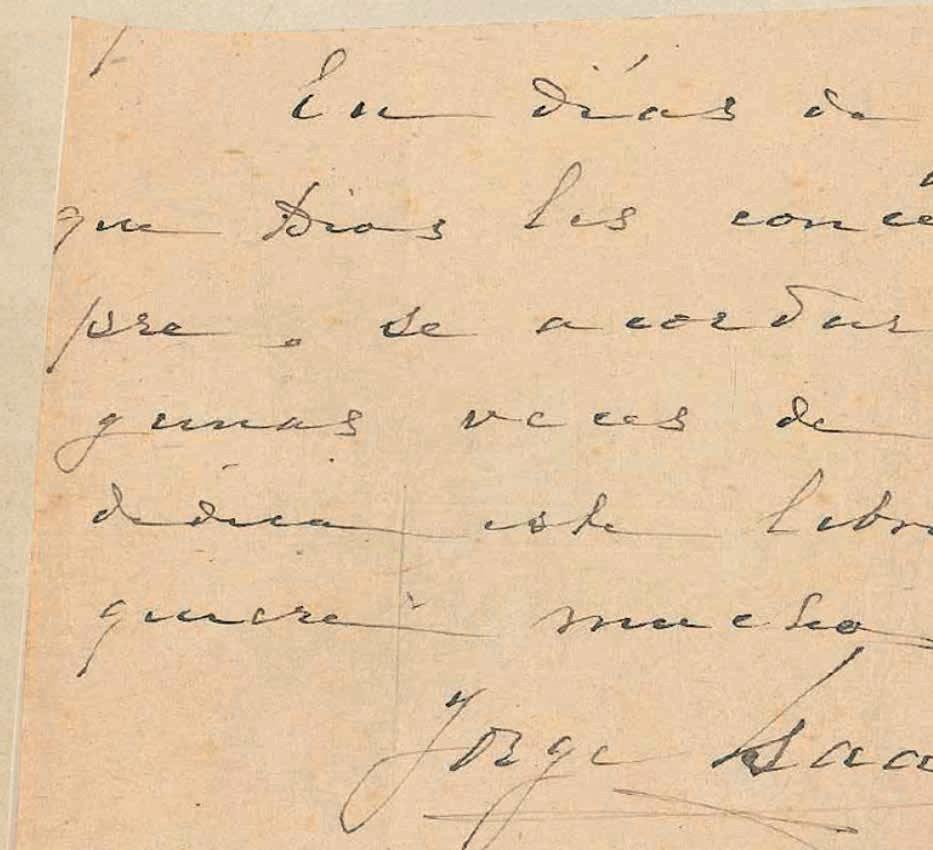 En días de
que Dios les conce
pre, se acordar
gunas veces de
dedica este libro
quiere mucho
Jorge Isaa